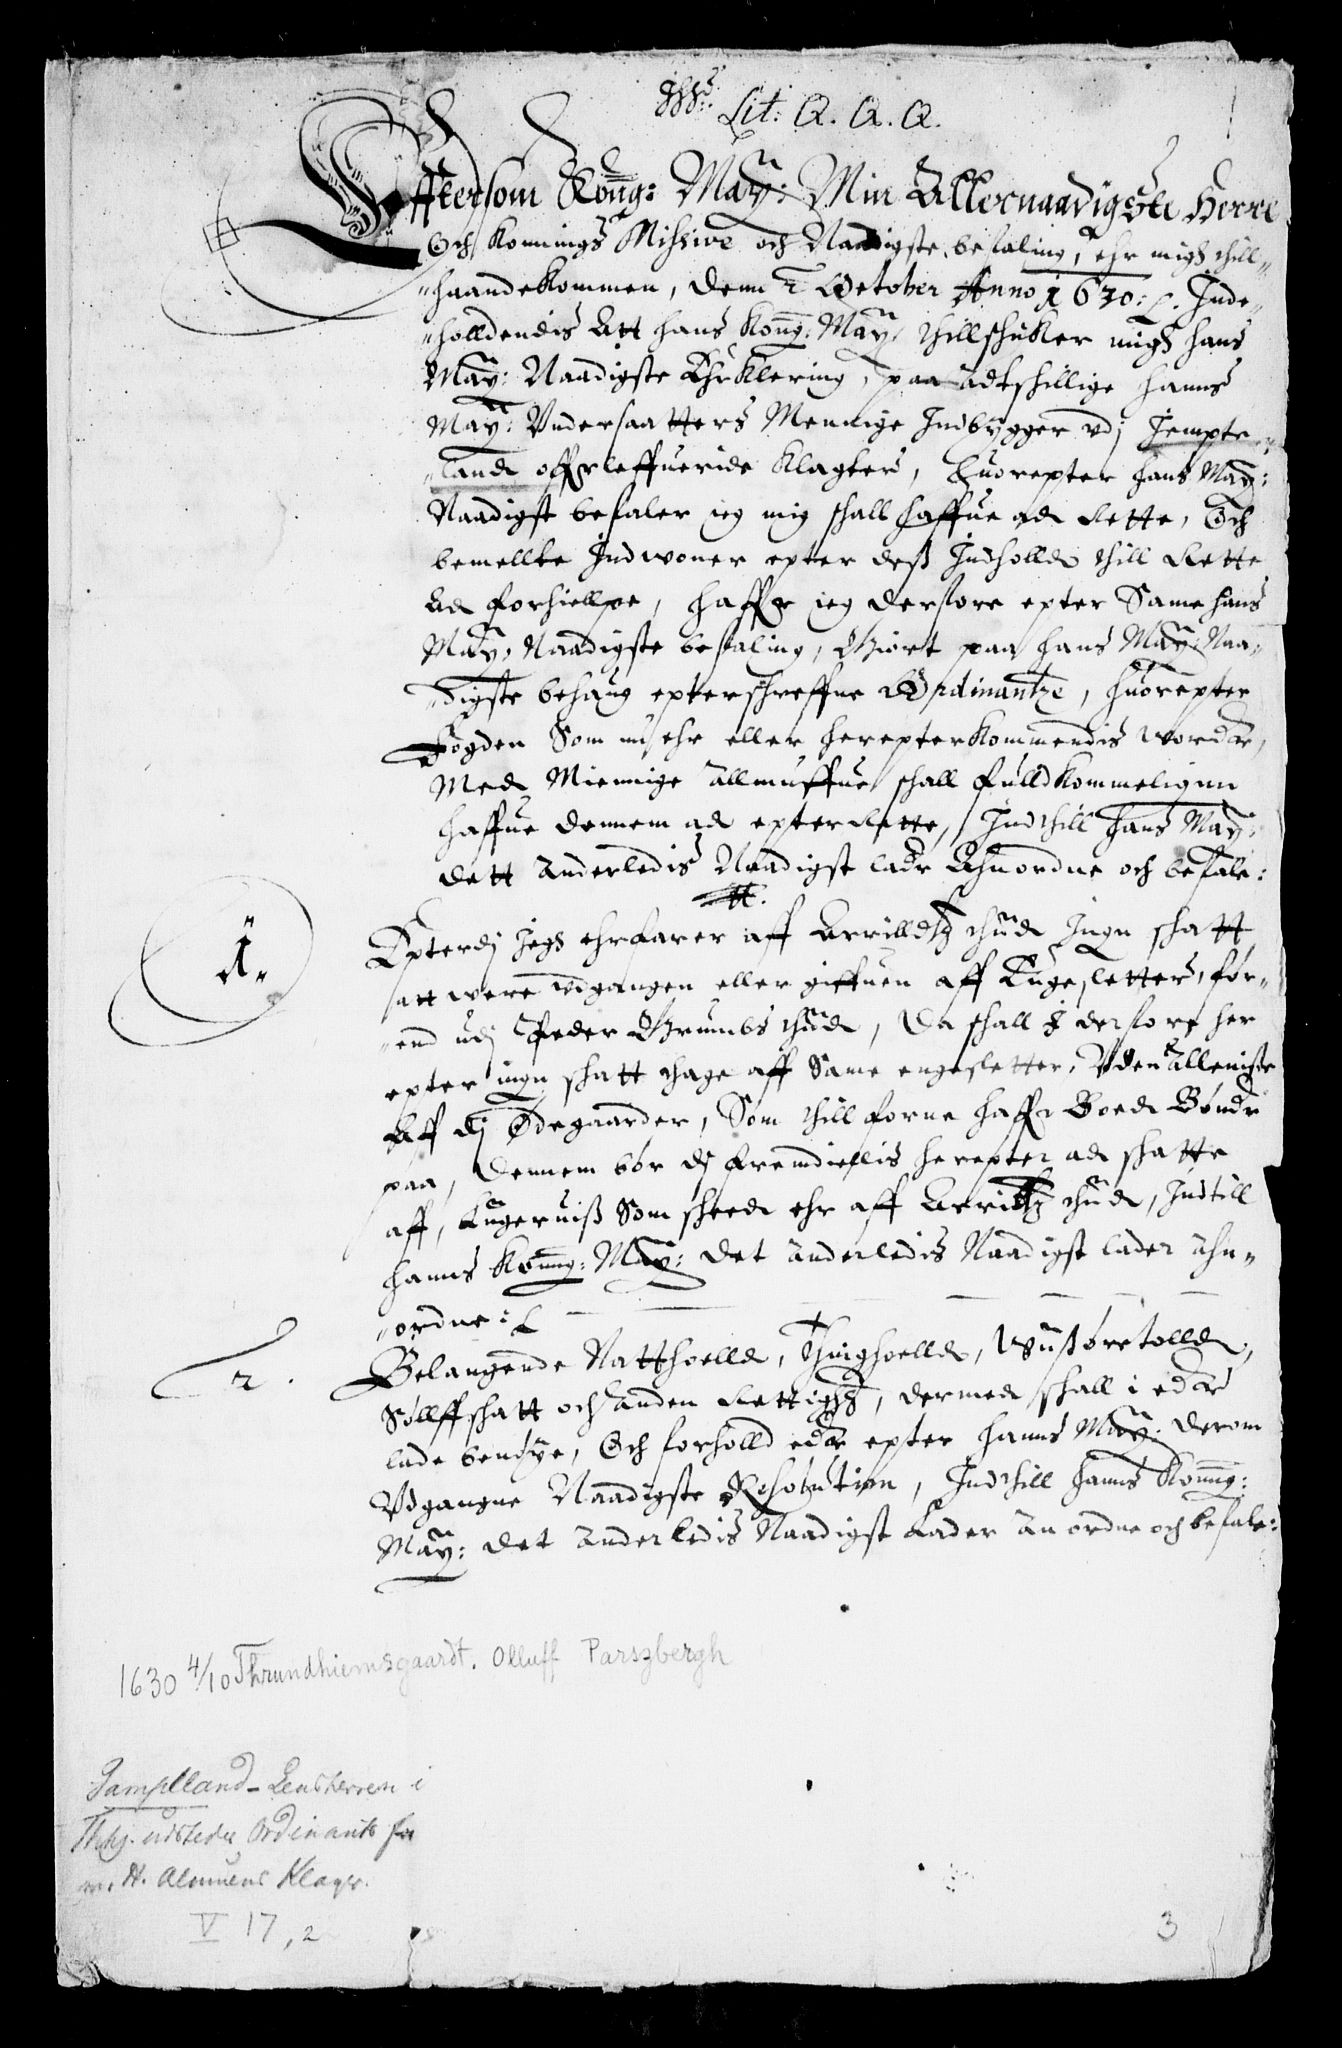 Lit: Q. Q. Q.
Effttersom Kongg: May: Min Allernaadigste Herre
Och Konnings Missive och Naadigste befaling, ehr migh thill-
haandekommen, denn 2 October Anno 1630: Inde-
holldendis Att hans Kongg: May: thillschicker migh hans
May: Naadigste Ehrklering, paa Adtschillige hanns
May: Undersaatters Menige Indbygger udj Jempte-
land offrleffueride Klagter, huorepter hans May:
Naadigst befaler ieg mig schall haffue ad Rette, Och
bemellte Indwoner epter dess Indholld thill Rette
ad forhiellpe, haffr ieg derfore epter Same hans
May: Naadigste befaling, Giort paa hans May: Naa-
digste behaug epterschreffne Ordinantze, huorepter
Fogden Som nu ehr eller herepterkommendis worder,
Med Miennige Allmuffue schall fulldkommeligen
haffue dennem ad epterrette, Indthill hans May:
dett Anderledis Naadigst lader Ahnordne och befale:
1.
Epterdj Jegh ehrfarer aff Arrilldtz thiid Ingn schatt
att were udgangen eller giffuen aff Engesletter, for-
end udj Peder Grumbs thiid, Da schall I derfore her
epter ingn schatt thage aff Same engesletter, Uden Alleniste
Aff dj Ødegaarder, Som thill forne haffr Boed Bøndr
paa, dennem bør dj fremdielis herepter ad schatte
aff, Liigeruiss Som scheed ehr aff Arriltz thiid, Indtill
hanns Konng: May: det Anderledis Naadigst lader Ahn-
ordne:
2.
Belangende Natthoelld, Thinghoelld, Wissøretolld,
Søllffschatt och Anden Rettighed, dermed schall i eder
lade benøye, Och forholld eder epter hanns May: derom
Udgangne Naadigste Resolution, Indthill hanns Konng:
May: det Anderledis Naadigst Lader Anordne och befale:
1630 4/10 Thrundhiemsgaardt. Olluff Parszbergh
Jamptland - Lensherren i
Thhj. udsteder Ordinants
Almuens Klager.
V 17, 2
3